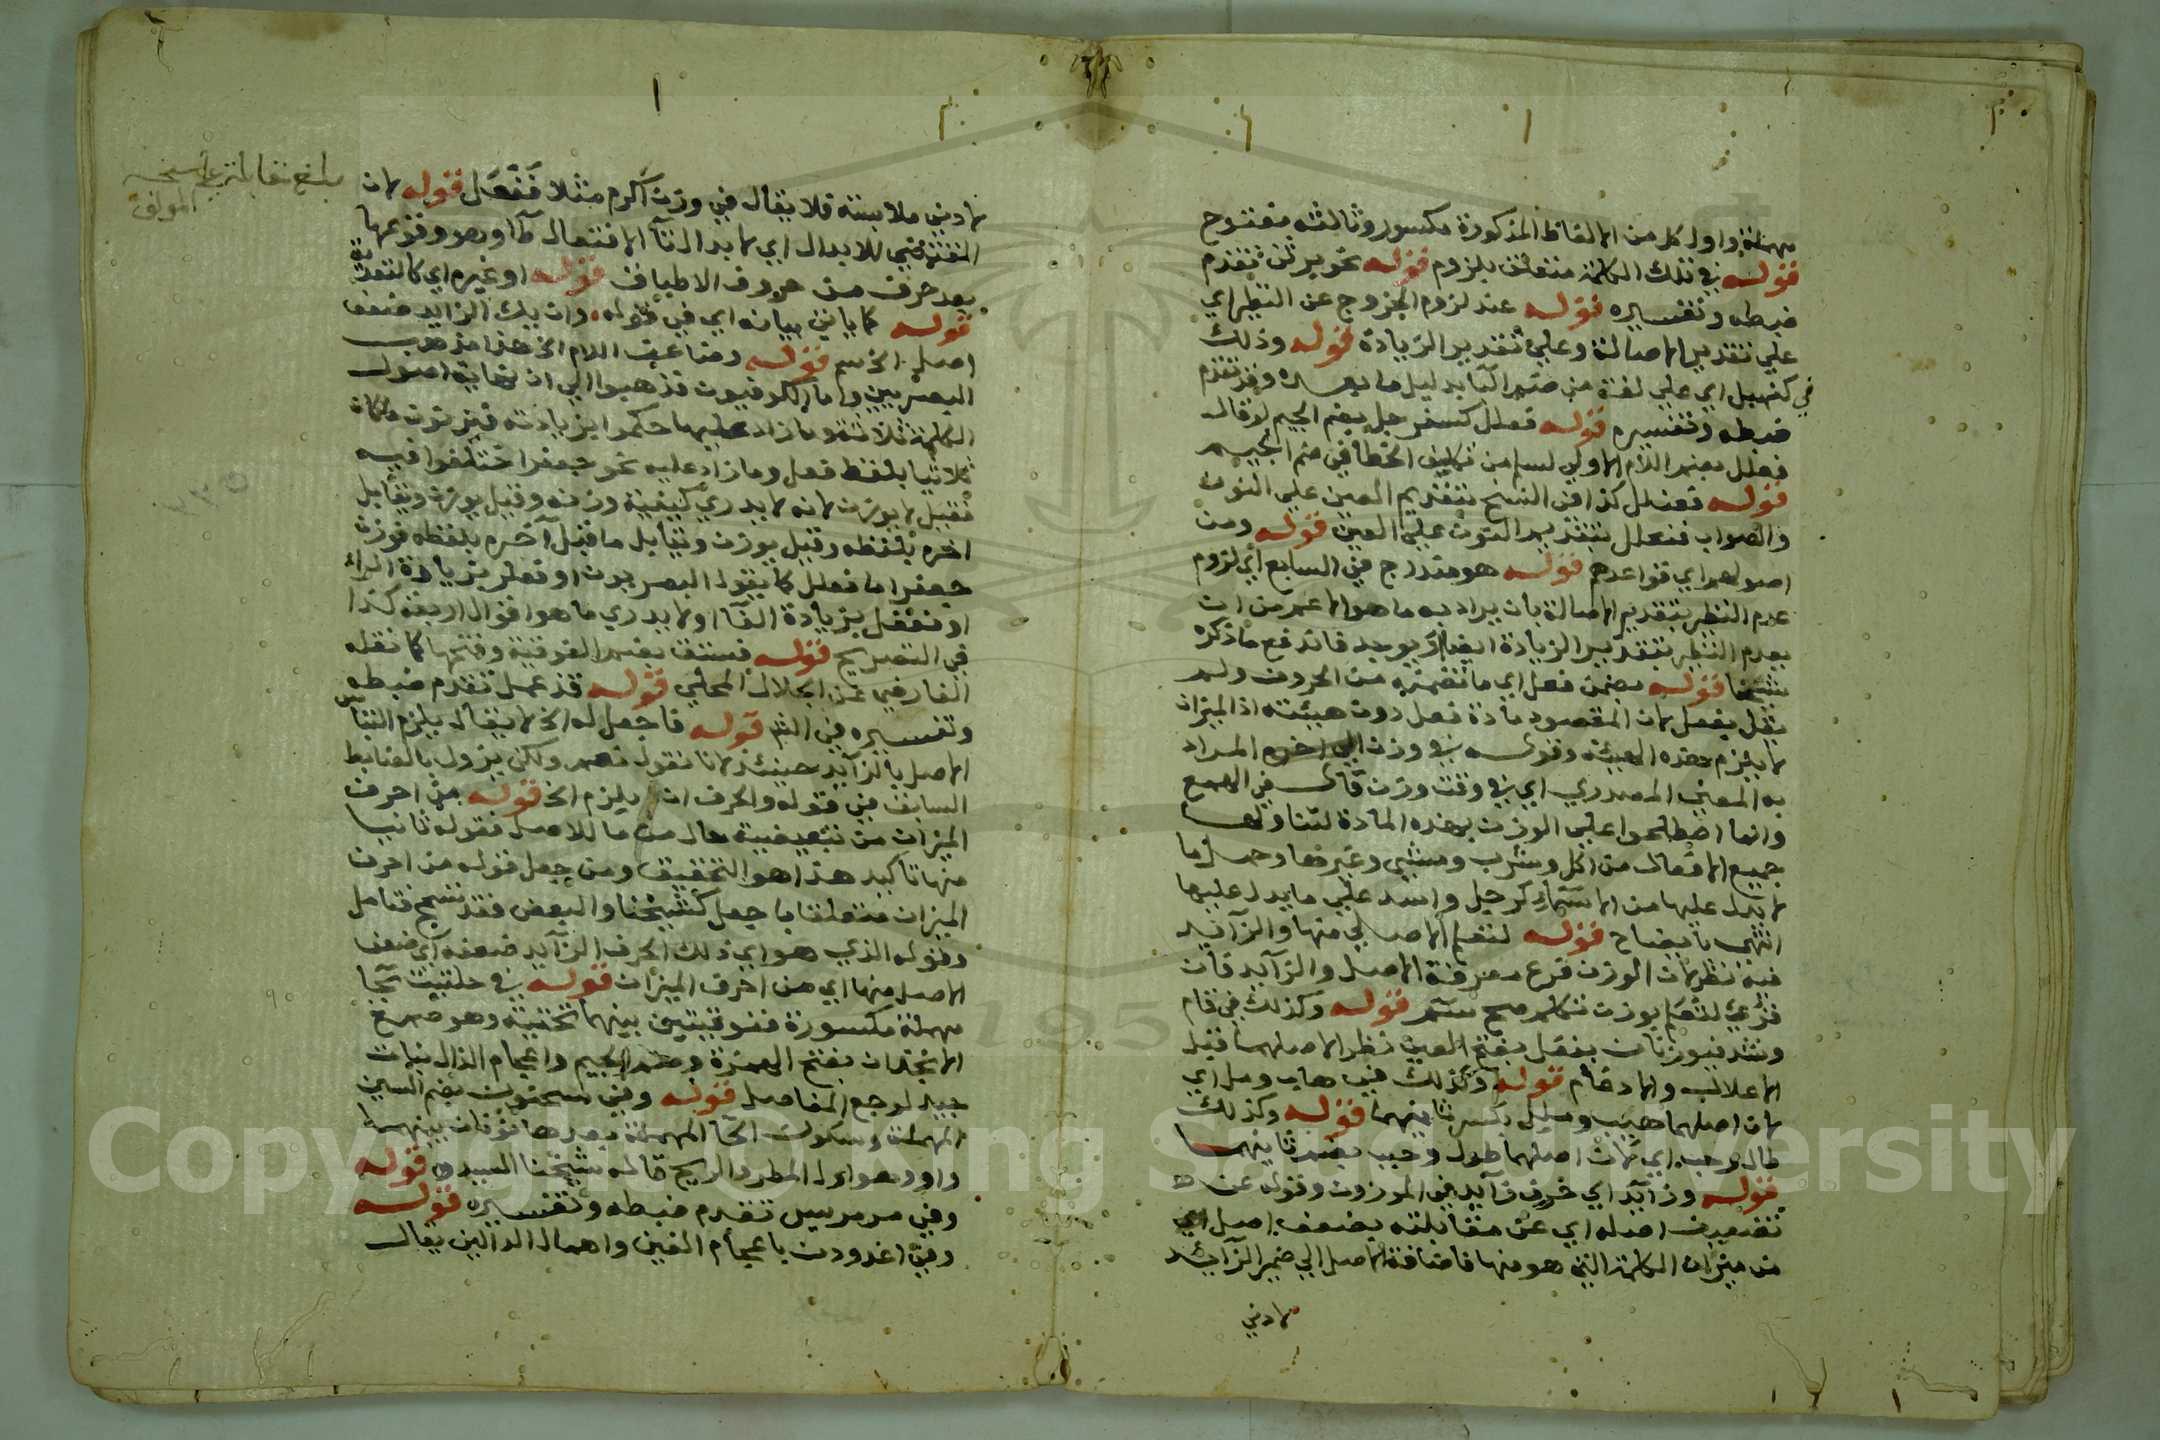 مهملة واول كل من الالفاظ المذكورة مكسور وثالثه مفتوح
قوله في تلك الكلمة متعلق بلزوم قوله نحو تقدم
ضبطه وتفسيره قوله عند لزوم الخروج عن النظير اي
علي تقدير الاصالة وعلي تقدير الزيادة قوله وذلك
في كنهبل اي علي لغة من ضم البا بدليل ما بعده وقد تقدم
ضبطه وتفسيره قوله فعلل كسفرجل بضم الجيم لو قال
فعلل بضم اللام الاولي لسلم من تكليف الخطا في ضم الجيم
قوله فعنلل كذا في النسخ بتقديم العين علي النون
والصواب فنعلل بتقديم النون علي العين قوله ومن
اصولهم اي قواعدهم قوله هو مندرج في السابع اي لزوم
عدم النظير بتقدير الاصالة بان يراد به ما هو الاعم من ان
بعدم النظير بتقدير الزيادة ايضا او يوجد فاندفع ما ذكره
شيخنا قوله بضمن فعل اي ما تضمنه من الحروف ولم
يقل بفعل لان المقصود مادة فعل دون هيئته اذ الميزان
لا يلزم هذه الهيئة وقوله في وزن الي اخره المراد
به المعني المصدري اي في وقت وزن قال في الهمع
وانما اصطلحوا علي الوزن بهذه المادة لتناولها
جميع الافعال من اكل وشرب ومشي وغيرها وحمل ما
لا يدل عليها من الاسماء كرجل واسد علي ما يدل عليها
انتهي بايضاح قوله لتعلم الاصلي منها والزايد
فيه نظر لان الوزن فرع معرفة الاصل والزايد فان
قرئ لتعلم بوزن تتكلم صح ستم قوله وكذلك في قام
وشد فيوزنان بفعل بفتح العين نظرا لاصلهما قبل
الاعلال والادغام قوله وكذلك في هاب ومل اي
لان اصلهما هيب وملل بكسر ثانيهما قوله وكذلك
طال وحب اي لان اصلهما طول وحبب بضم ثانيهما
قوله وزايد اي حرف زايد في الموزون وقوله عن
تضعيف اصله اي عن مقابلته بضعف اصل اي
من ميزان الكلمة التي هو منها فاضافة الاصل الي ضمير الزايد
لادني
لادني ملابسة فلا يقال في وزن اكرم مثلا ففعل قوله لان
المقتضي للابدال اي لابدال تآ الافتعال طآ وهو وقوعها
بعد حرف من حروف الاطباق قوله او غيره اي كالتعدية
قوله كما ياتي بيانه اي في قوله وان يك الزايد ضعف
اصل الخ قوله وضاعف اللام الخ هذا مذهب
البصريين واما الكوفيون فذهبوا الي ان نهاية اصول
الكلمة ثلاثة وما زاد عليها حكموا بزيادته فيزنون ما كان
ثلاثيا بلفظ فعل وما زاد عليه نحو جعفر اختلفوا فيه
فقيل لا يوزن لانه لا يدري كيفية وزنه وقيل يوزن ويقابل
اخره بلفظه وقيل يوزن ويقابل ما قبل آخره بلفظه فوزن
جعفر اما فعلل كما يقول البصريون او فعلر بزيادة الراء
او فعفل بزيادة الفآ او لا يدري ما هو اقوال اربعة كذا
في التصريح قوله فستق بضم الفوقية وفتحها كما نقله
الفارضي عن الجلال المحلي قوله قذعمل تقدم ضبطه
وتفسيره في قوله فاجعل له الخ لا يقال يلزم التباس
الاصل بالزايد حينئذ لانا نقول نعم ولكن يزول بالضابط
السابق في قوله والحرف ان يلزم الخ قوله من احرف
الميزان من تبعيضية حال من ما للاصل فقوله ثانيا
منها تاكيد هذا هو التحقيق ومن جعل قوله من احرف
الميزان متعلقا باجعل كشيخنا والبعض فقد تسمح فتامل
وقوله الذي هو اي ذلك الحرف الزايد ضعفه اي ضعف
الاصل منها اي من احرف الميزان قوله في حلتيت بحا
مهملة مكسورة ففوقيتين بينهما تحتية وهو صمغ
الانجدان بفتح الهمزة وضم الجيم واعجام الذال نبات
جيد لوجع المفاصل قوله وفي سحنون بضم السين
المهملة وسكون الحا المهملة بعدها نونان بينهما
واو وهو اول المطر والريح قاله شيخنا السيد قوله
وفي مرمريس تقدم ضبطه وتفسيره قوله
وفي اغدودن باعجام الغين واهمال الدالين يقال
بلغ مقابلة علي نسخة
المؤلف
Copyright © King Saud University
195